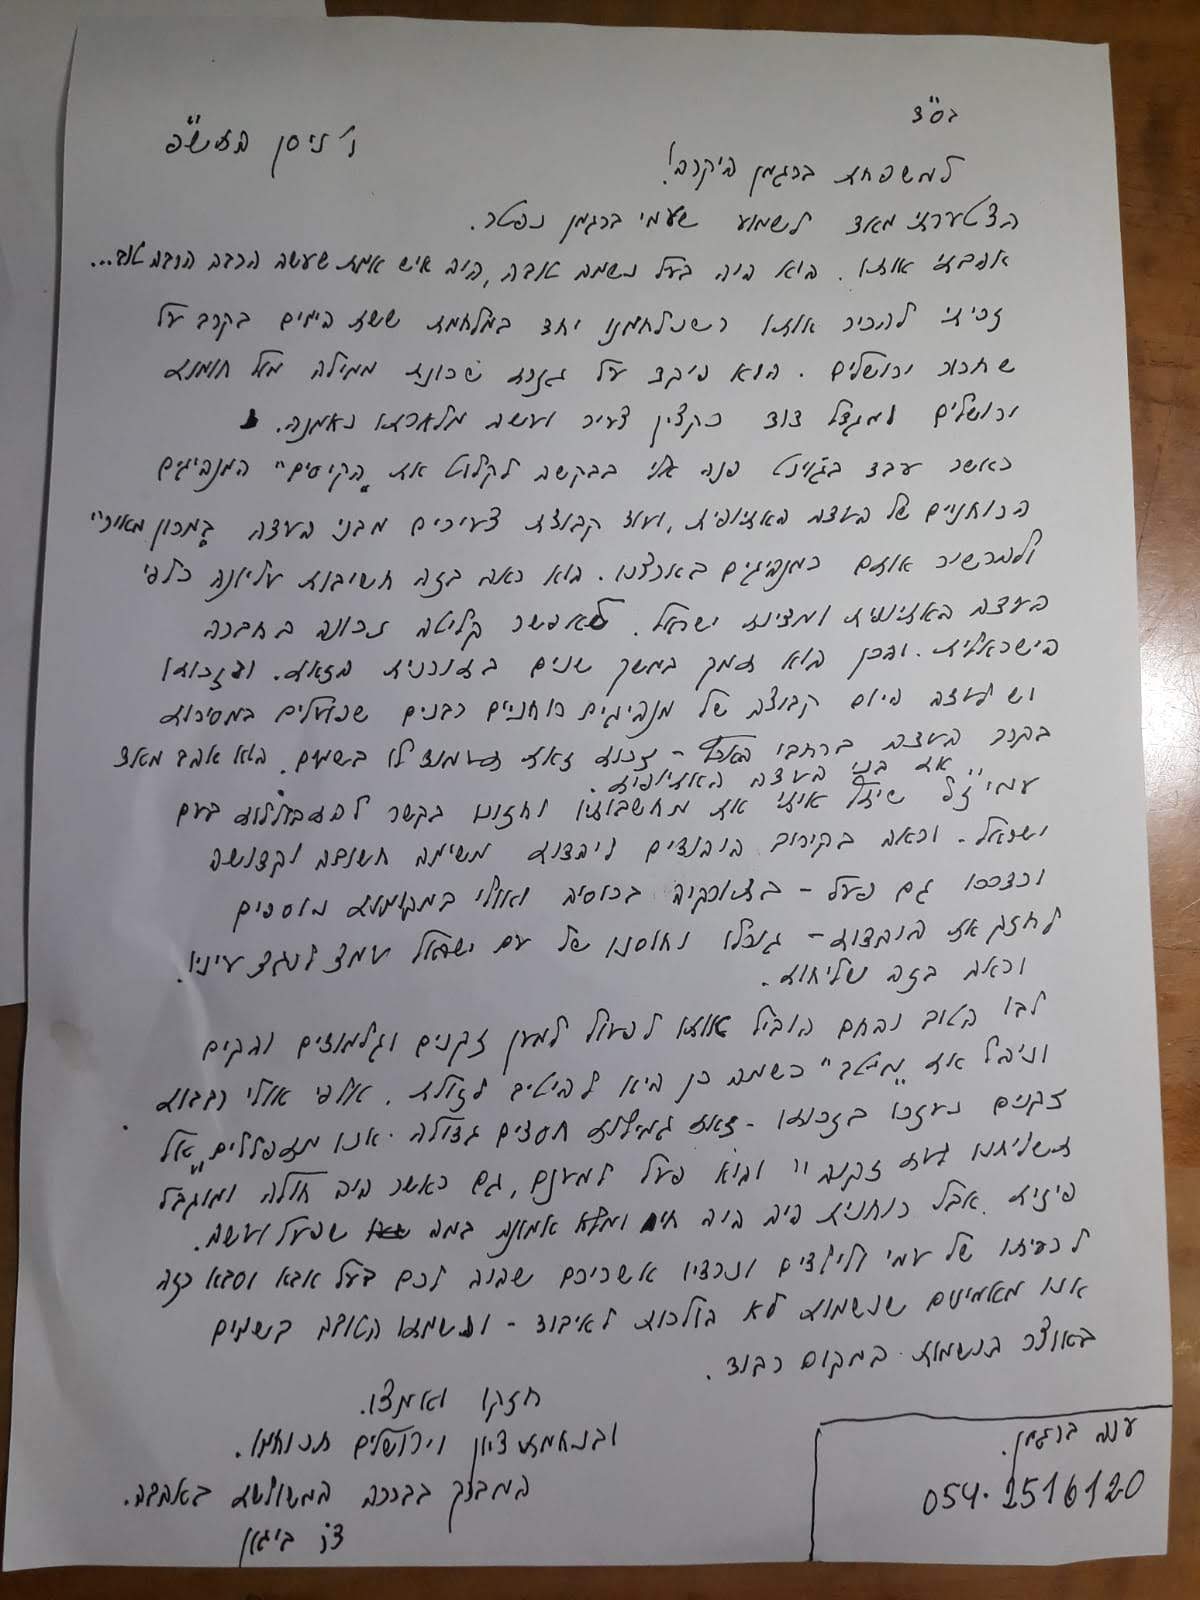 בס"ד
ו' ניסן התש"פ
למשפחת ברגמן היקרה!
הצטערתי מאד לשמוע שעמי ברגמן נפטר.
אהבתי אותו. הוא היה בעל נשמה טובה, היה איש אמת שעשה הרבה הרבה טוב...
זכיתי להכיר אותו כשנלחמנו יחד במלחמת ששת הימים בקרב על
שחרור ירושלים. הוא פיקד על גזרת שכונת ממילה מול חומות
ירושלים ומגדל דוד כקצין צעיר ועשה מלאכתו נאמנה.
כאשר עבד בג'וינט פנה אלי בבקשה לקלוט את "הקיסים" המנהיגים
הרוחניים של העדה האתיופית, ועוד קבוצת צעירים מבני העדה ב"מכון מאיר"
ולהכשיר אותם כמנהיגים בארצנו. הוא ראה בזה חשיבות עליונה כלפי
העדה האתיופית ומדינת ישראל. לאפשר קליטה נכונה בחברה
הישראלית. ולכן הוא תמך במשך שנים בתוכנית הזאת. ובזכותו
יש לעדה היום קבוצה של מנהיגים רוחניים רבנים שפועלים במסירות
בקרב העדה ברחבי הארץ - זכות זאת תעמוד לו בשמים. הוא אהב מאד
את בני העדה האתיופית.
עמי ז"ל שיתף איתי את מחשבותיו וחזונו בקשר להתבוללות בעם
ישראל - וראה בקירוב היהודים ליהדות משימה חשובה וקדושה
וכדרכו גם פעל - בצ'וקיה ברוסיה ואולי במקומות נוספים
לחזק את היהדות - גורלו וחוסנו של עם ישראל עמד לנגד עיניו.
וראה בזה שליחות.
לבו הטוב והחם הוביל אותו לפעול למען זקנים וגלמודים והקים
וניהל את "מיטב" כשמה כן היא להיטיב לזולת. אלפי אולי רבבות
זקנים נעזרו בזכותו - זאת גמילות חסדים גדולה. אנו מתפללים "אל
תשליחנו לעת זקנה" והוא פעל למענם, גם כאשר היה חולה ומוגבל
פיזית. אבל רוחנית היה היה חי ומלא אמונה במה שפעל ועשה.
לרעיתו של עמי לילדים ונכדיו אשריכם שהיה לכם בעל אבא וסבא כזה
אנו מאמינים שנשמות לא הולכות לאיבוד - ונשמתו הטובה בשמים
באוצר הנשמות במקום כבוד.
חזקו ואמצו.
ובנחמת ציון וירושלים תנוחמו.
המברך בברכה המשולשת באהבה.
ביגון
ענה ברגמן.
054-2516120